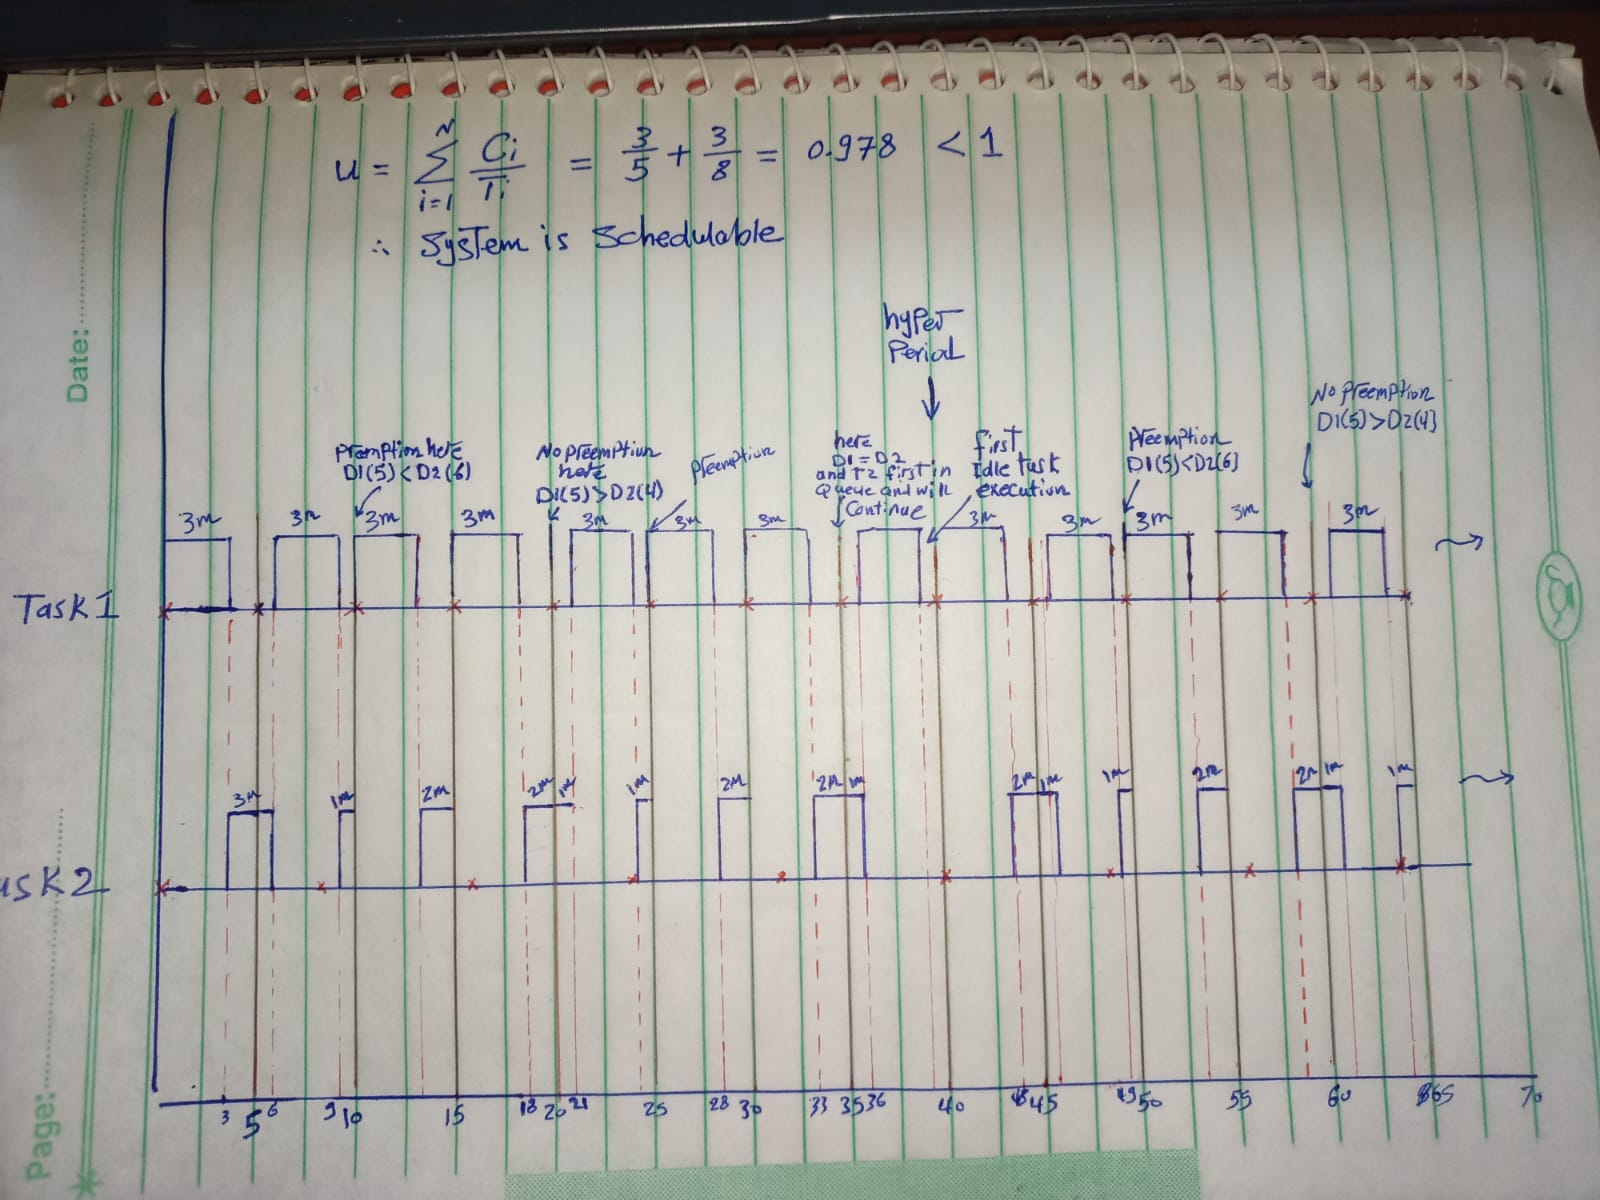 u = N Σ i=1 Ci/Ti = 3/5 + 3/8 = 0.978 < 1
∴ System is Schedulable
Date:
hyper
Period
No Preemption
D1(5)>D2(4)
Premption here
D1(5)<D2(6)
No Preemption
here
D1(5)>D2(4)
Preemption
here
D1=D2
and T2 first in
Queue and will
Continue
first
Idle task
execution
Preemption
D1(5)<D2(6)
3m 3m 3m 3m 3m 3m 3m 3m 3m 3m 3m 3m
Task1
3m 1m 2m 2m 1m 1m 2m 2m 1m 2m 1m 1m 2m 2m 1m 1m
ask2
3 5 6 9 10 15 18 20 21 25 28 30 33 35 36 40 45 49 50 55 60 65 70
Page: